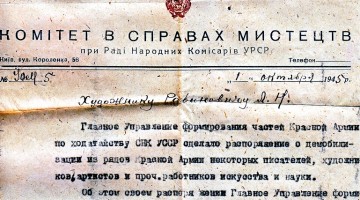 КОМІТЕТ В СПРАВАХ МИСТЕЦТВ
при Раді Народних Комісарів УРСР
Київ, вул. Короленка, 56
Телефон
№
1 октября 1945 г.
Художнику Рабиновичу
Главное Управление формирования частей Красной Армии
по ходатайству СНК УССР сделало распоряжение о демобили-
зации из рядов Красной Армии некоторых писателей, художни-
ков, артистов и проч. работников искусства и науки.
Об этом своем распоряжении Главное Управление форм